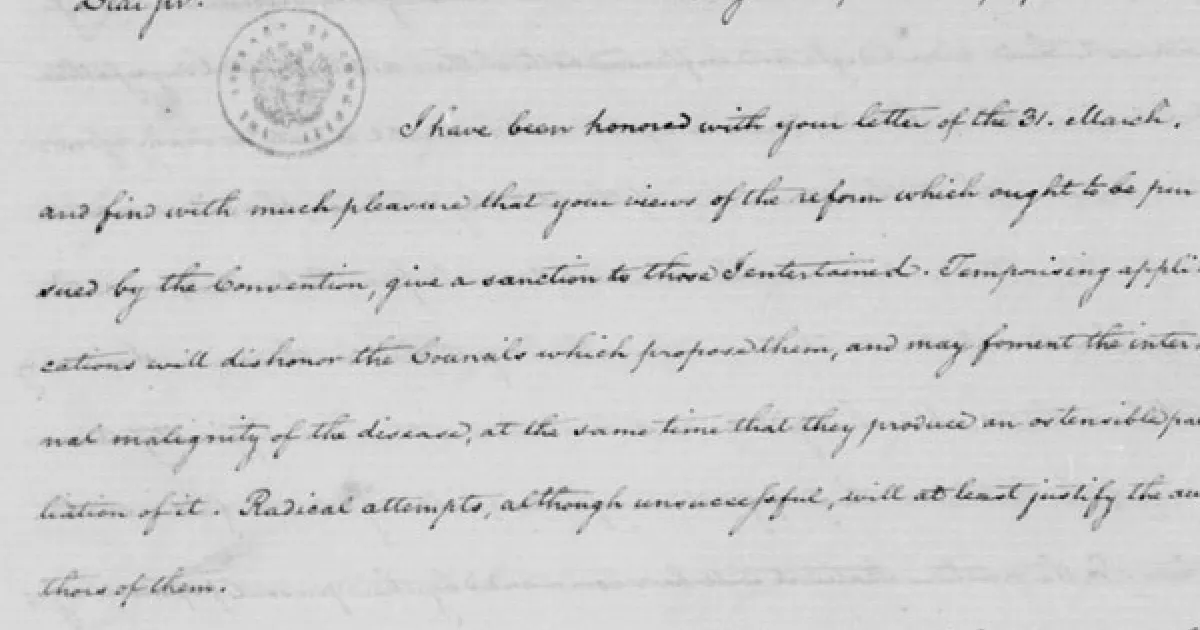 Dear sir.
I have been honored with your letter of the 31. March,
and find with much pleasure that your views of the reform which ought to be pur
sued by the Convention, give a sanction to those I entertained. Temporising appli
cations will dishonor the Councils which propose them, and may foment the inter
nal malignity of the disease, at the same time that they produce an ostensible pal
liation of it. Radical attempts, although unsuccessful, will at least justify the au
thors of them.